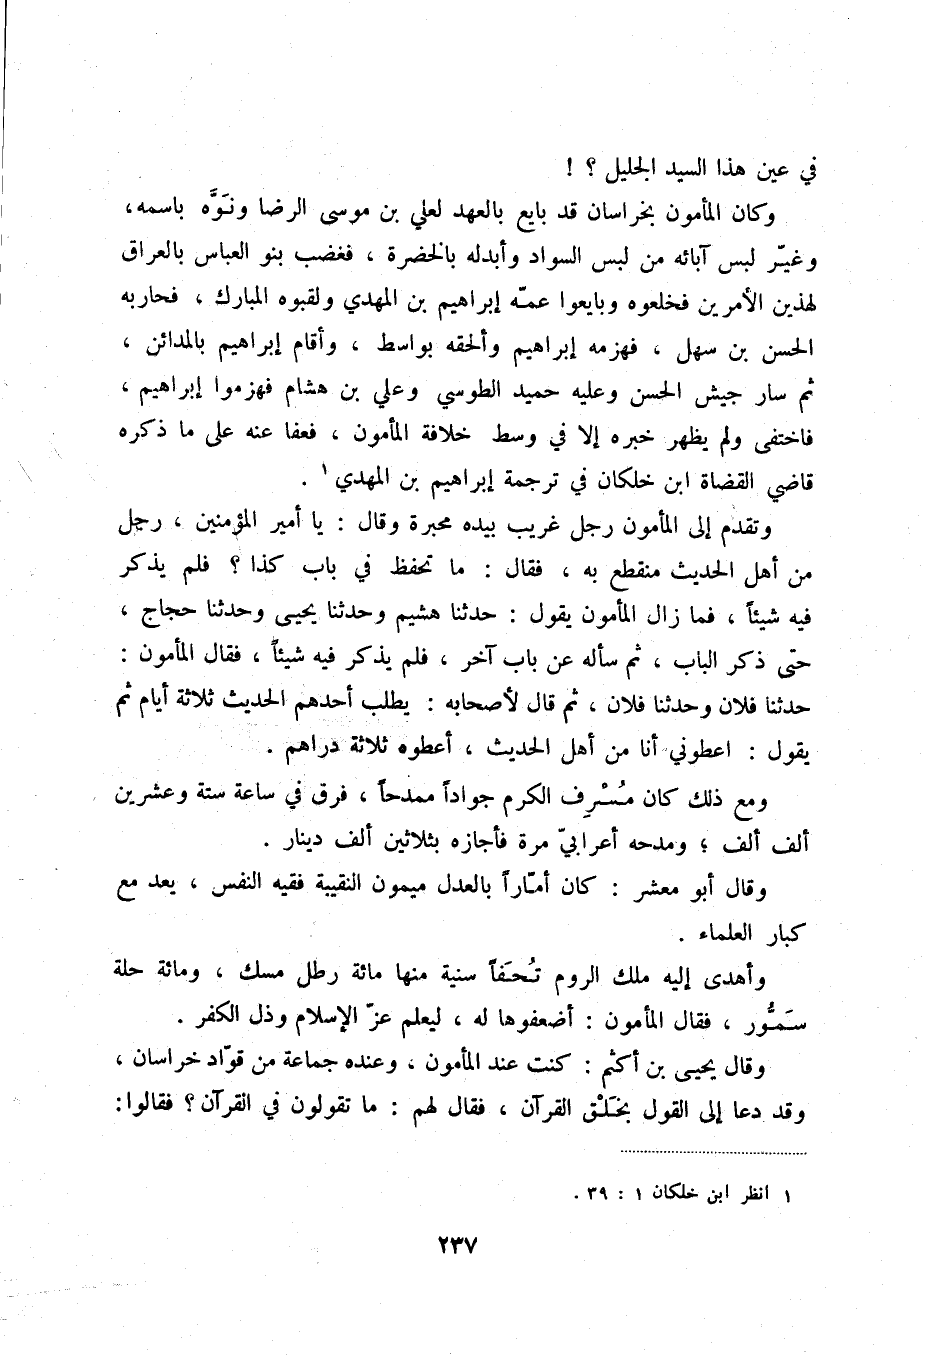 في عين هذا السيد الجليل ؟ !
وكان المأمون بخراسان قد بايع بالعهد لعلي بن موسى الرضا ونَوَّه باسمه،
وغيّر لبس آبائه من لبس السواد وأبدله بالخضرة ، فغضب بنو العباس بالعراق
لهذين الأمرين فخلعوه وبايعوا عمّه إبراهيم بن المهدي ولقبوه المبارك ، فحاربه
الحسن بن سهل ، فهزمه إبراهيم وألحقه بواسط ، وأقام إبراهيم بالمدائن ،
ثم سار جيش الحسن وعليه حميد الطوسي وعلي بن هشام فهزموا إبراهيم ،
فاختفى ولم يظهر خبره إلا في وسط خلافة المأمون ، فعفا عنه على ما ذكره
قاضي القضاة ابن خلكان في ترجمة إبراهيم بن المهدي ١ .
وتقدم إلى المأمون رجل غريب بيده محبرة وقال : يا أمير المؤمنين ، رجل
من أهل الحديث منقطع به ، فقال : ما تحفظ في باب كذا ؟ فلم يذكر
فيه شيئاً ، فما زال المأمون يقول : حدثنا هشيم وحدثنا يحيى وحدثنا حجاج ،
حتى ذكر الباب ، ثم سأله عن باب آخر ، فلم يذكر فيه شيئاً ، فقال المأمون :
حدثنا فلان وحدثنا فلان ، ثم قال لأصحابه : يطلب أحدهم الحديث ثلاثة أيام ثم
يقول : اعطوني أنا من أهل الحديث ، أعطوه ثلاثة دراهم .
ومع ذلك كان مُسْرِف الكرم جواداً ممدحاً ، فرق في ساعة ستة وعشرين
ألف ألف ؛ ومدحه أعرابيّ مرة فأجازه بثلاثين ألف دينار .
وقال أبو معشر : كان أمّاراً بالعدل ميمون النقيبة فقيه النفس ، يعد مع
كبار العلماء .
وأهدى إليه ملك الروم تُحَفاً سنية منها مائة رطل مسك ، ومائة حلة
سَمُّور ، فقال المأمون : أضعفوها له ، ليعلم عزّ الإسلام وذل الكفر .
وقال يحيى بن أكثم : كنت عند المأمون ، وعنده جماعة من قوّاد خراسان ،
وقد دعا إلى القول بخَلْق القرآن ، فقال لهم : ما تقولون في القرآن ؟ فقالوا:
١ انظر ابن خلكان ١ : ٣٩ .
٢٣٧